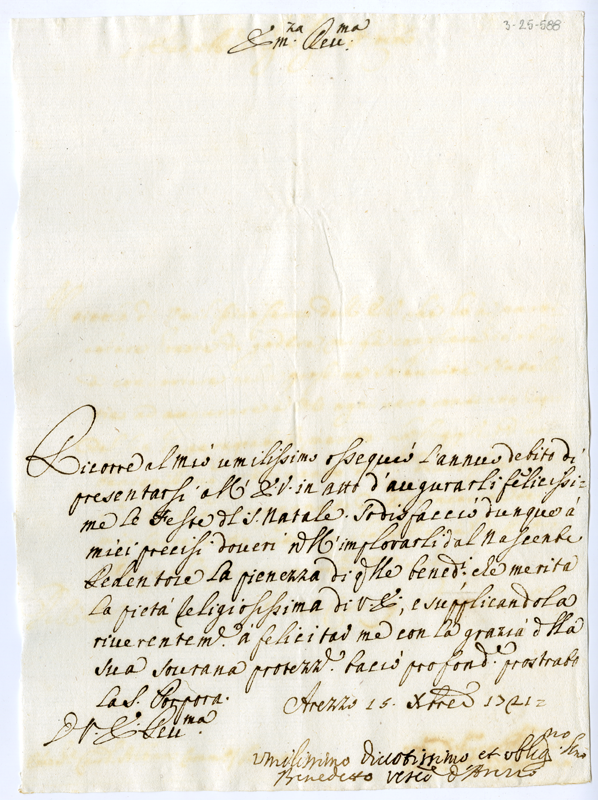 3-25-588
Em.za Reu.ma
Ricorre al mio umilissimo ossequio l'annuo debito di
presentarsi all' E.V. in atto d'augurarli felicissi=
me le Feste del S. Natale. Sodisfaccio dunque à
miei precisi doueri nell' implorarli dal Nascente
Redentore la pienezza di q.lle bened.i che merita
la pietà Religiosissima di V.E., e supplicandola
riuerentem.e a felicitar me con la grazia della
sua sourana protezz.e bacio profond.e prostrato
la S. Porpora. Arezzo 15. Xbre 1721=
D.V.E. Reu.ma
Umilissimo Diuotissimo et obblig.mo Ser.e
Benedetto Vesc.o d'Arezzo